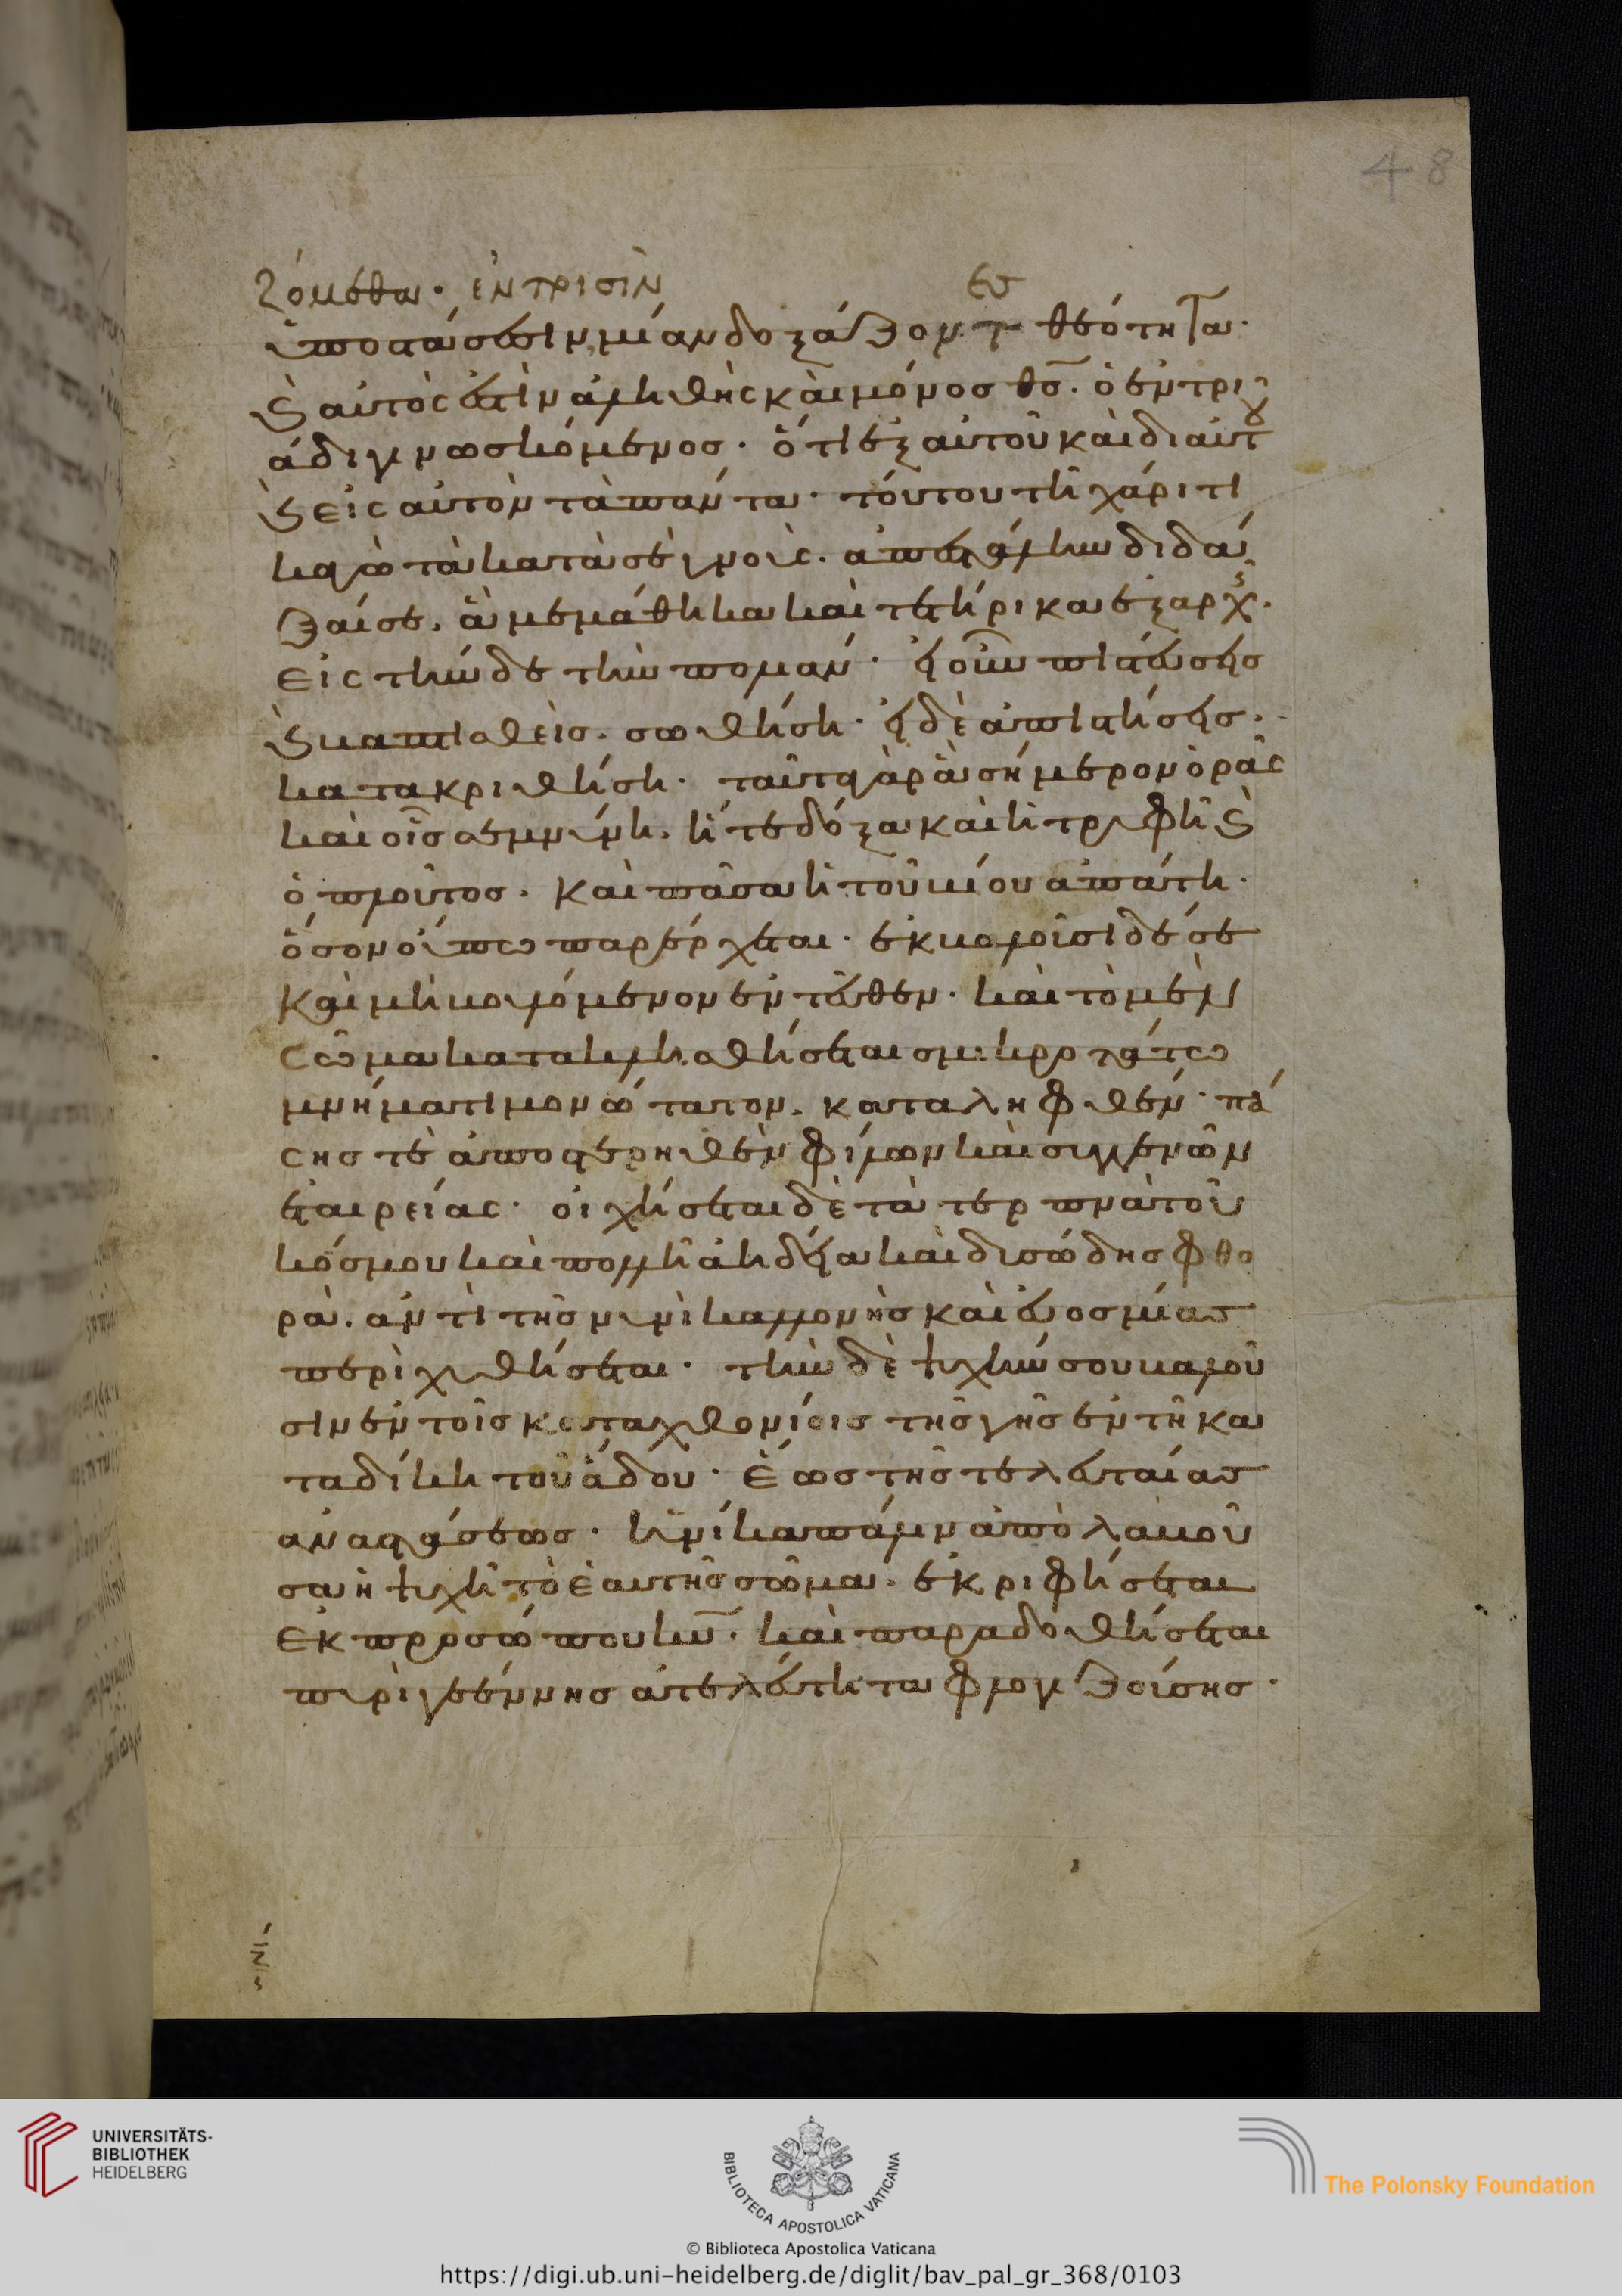 48
ζόμεθα· ἐν τρισὶν
ὑποστάσεσιν μίαν δοξάζοντες θεότητα·
ϗ αὐτός ἐστὶν ἀληθὴς καὶ μόνος θς̅. ὁ ἐν τρι
άδι γινωσκόμενος· ὅτι ἐξ αὐτοῦ καὶ δι αὐτοῦ
ϗ εἰς αὐτὸν τὰ πάντα· τούτου τῆ χάριτι
κἀγὼ τὰ κατὰ σὲ γνοὺς. ἀπεστάλην διδά
ξαί σε. ἃ μεμάθηκα καὶ τετήρικα ἐξ αρχῆς
εἰς τήνδε τὴν πολιάν· εἰ οὖν πιστεύσεις
ϗ βαπτισθεὶς. σωθήση· εἰ δὲ ἀπιστήσεις.
κατακριθήση· ταῦτα γὰρ ἃ σήμερον ὁρᾶς
καὶ οἷς σεμνύνη. ἥ τε δόξα καὶ ἡ τρυφὴ ϗ
ὁ πλοῦτος. καὶ πᾶσα ἡ τοῦ βίου ἀπάτη.
ὅσον οὔπω παρέρχεται· ἐκβαλοῦσι δέ σε
καὶ μὴ βουλόμενον ἐντεῦθεν. καὶ τὸ μὲν
σῶμα κατακλεισθήσεται σμικροτάτω
μνήματι μονώτατον. καταληφθέν· πά
σης τὲ ἀποστερηθὲν φίλων καὶ συγγενῶν
ἑταιρείας· οἰχήσεται δὲ τὰ τερπνὰ τοῦ
κόσμου καὶ πολλὴ ἀηδεία καὶ δυσώδης φθο
ρὰ. ἀντὶ τῆς νυνὶ καλλονῆς καὶ εὐοσμίας
περιχυθήσεται· τὴν δὲ ψυχήν σου βαλοῦ
σιν ἐν τοῖς καταχθονίοις τῆς γῆς ἐν τῆ κα
ταδίκη τοῦ ἅδου· ἕως τῆς τελευταίας
ἀναστάσεως· ἡνίκα πάλιν ἀπολαβοῦ
σα ἡ ψυχὴ τὸ ἑαυτῆς σῶμα. ἐκριφήσεται
ἐκ προσώπου κυ̅. καὶ παραδοθήσεται
πυρὶ γεέννης ἀτελεύτητα φλογιζούσης·
UNIVERSITÄTS-
BIBLIOTHEK
HEIDELBERG
BIBLIOTECA APOSTOLICA VATICANA
The Polonsky Foundation
© Biblioteca Apostolica Vaticana
https://digi.ub.uni-heidelberg.de/diglit/bav_pal_gr_368/0103